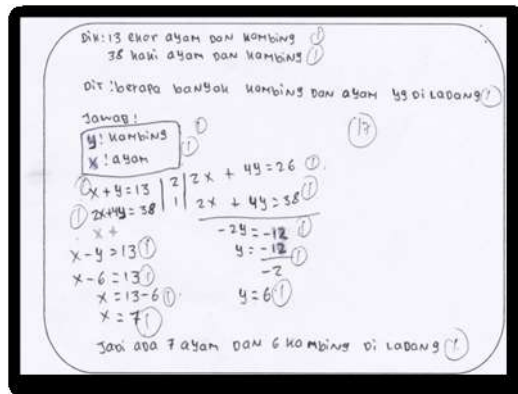 Dik: 13 ekor ayam dan kambing 1
38 kaki ayam dan kambing 1
Dit: berapa banyak kambing dan ayam yg di ladang 1
Jawab!
y: kambing 1
x: ayam 1
17
1 x + y = 13 | 2 | 2x + 4y = 26 1
1 2x + 4y = 38 | 1 | 2x + 4y = 38 1
x +
-2y = -12 1
x - y = 13 1
y: -12 1
-2
x - 6 = 13 1
y = 6 1
x = 13 - 6 1
x = 7 1
Jadi ada 7 ayam dan 6 kambing di ladang 1